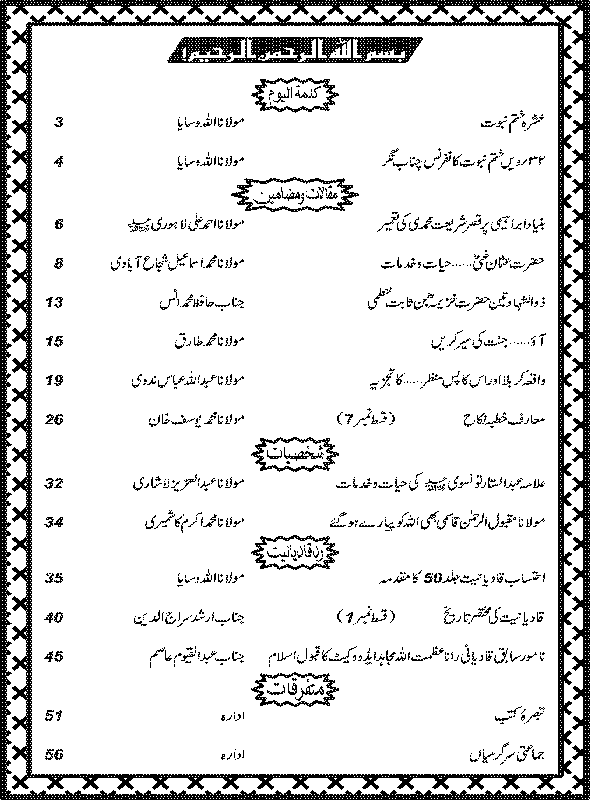 بسم اللہ الرحمن الرحیم
کلمۃ الیوم
عشرہ ختم نبوت مولانا اللہ وسایا 3
۳۲ رویں ختم نبوت کانفرنس چناب نگر مولانا اللہ وسایا 4
مقالات ومضامین
بنیاد ابراہیمی پر قصر شریعت محمدی کی تعمیر مولانا احمد علی لاہوری 6
حضرت عثمان غنی ...... حیات وخدمات مولانا محمد اسماعیل شجاع آبادی 8
ذوالشہادتین حضرت خزیمہ بن ثابت خطمی جناب حافظ محمد انس 13
آؤ ...... جنت کی سیر کریں مولانا محمد طارق 15
واقعہ کربلا اور اس کا پس منظر ...... کا تجزیہ مولانا عبداللہ عباس ندوی 19
معارف خطبہ نکاح (قسط نمبر 7) مولانا محمد یوسف خان 26
شخصیات
علامہ عبدالستار تونسوی کی حیات وخدمات مولانا عبدالعزیز لاشاری 32
مولانا مقبول الرحمٰن قاسمی بھی اللہ کو پیارے ہوگئے مولانا محمد اکرم کاشمیری 34
رد قادیانیت
احتساب قادیانیت جلد 50 کا مقدمہ مولانا اللہ وسایا 35
قادیانیت کی مختصر تاریخ (قسط نمبر 1) جناب ارشد سراج الدین 40
نامور سابق قادیانی رانا عظمت اللہ مجاہد ایڈووکیٹ کا قبول اسلام جناب عبدالقیوم عاصم 45
متفرقات
تبصرۂ کتب ادارہ 51
جماعتی سرگرمیاں ادارہ 56